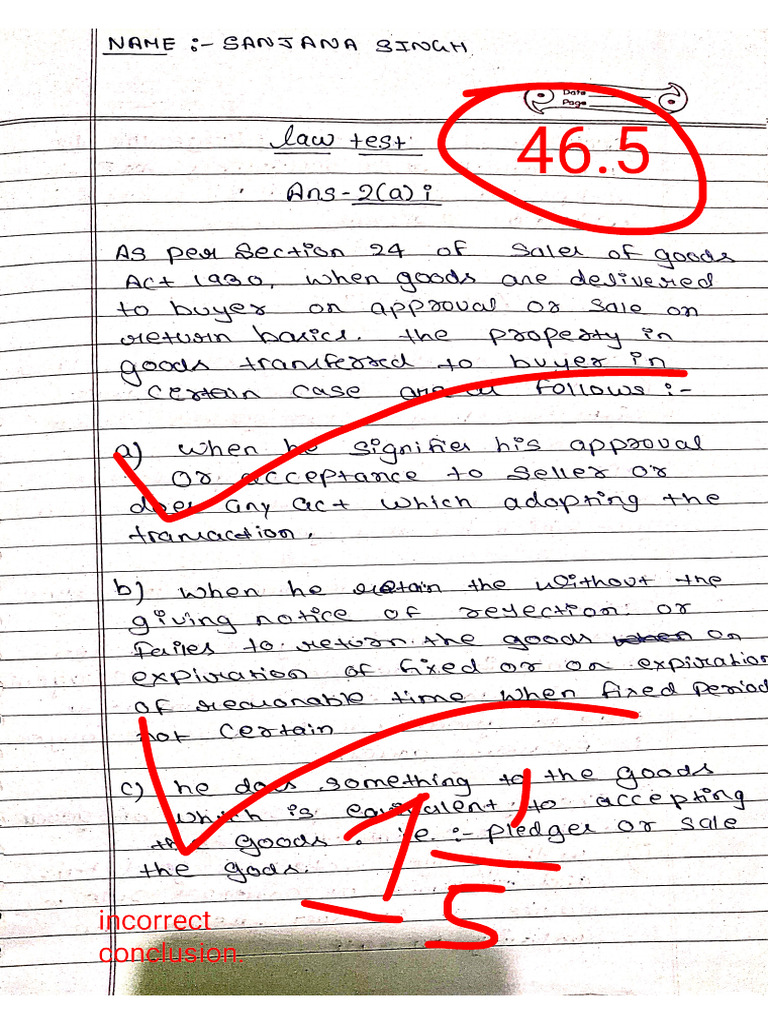 NAME :- SANJANA SINGH
Date
Page
46.5
law test
Ans-2(a) i
As per Section 24 of Sales of goods
Act 1930, when goods are delivered
to buyer on approval or sale on
return basics. the property in
goods transferred to buyer in
certain case are as follows :-
a) when he signifies his approval
or acceptance to seller or
does any act which adopting the
transaction.
b) when he retain the without the
giving notice of rejection or
failes to return the goods on
expiration of fixed or on expiration
of reasonable time when fixed period
not certain
c) he does something to the goods
which is equivalent to accepting
the goods. i.e :- pledges or sale
the gods.
1
5
incorrect
conclusion.